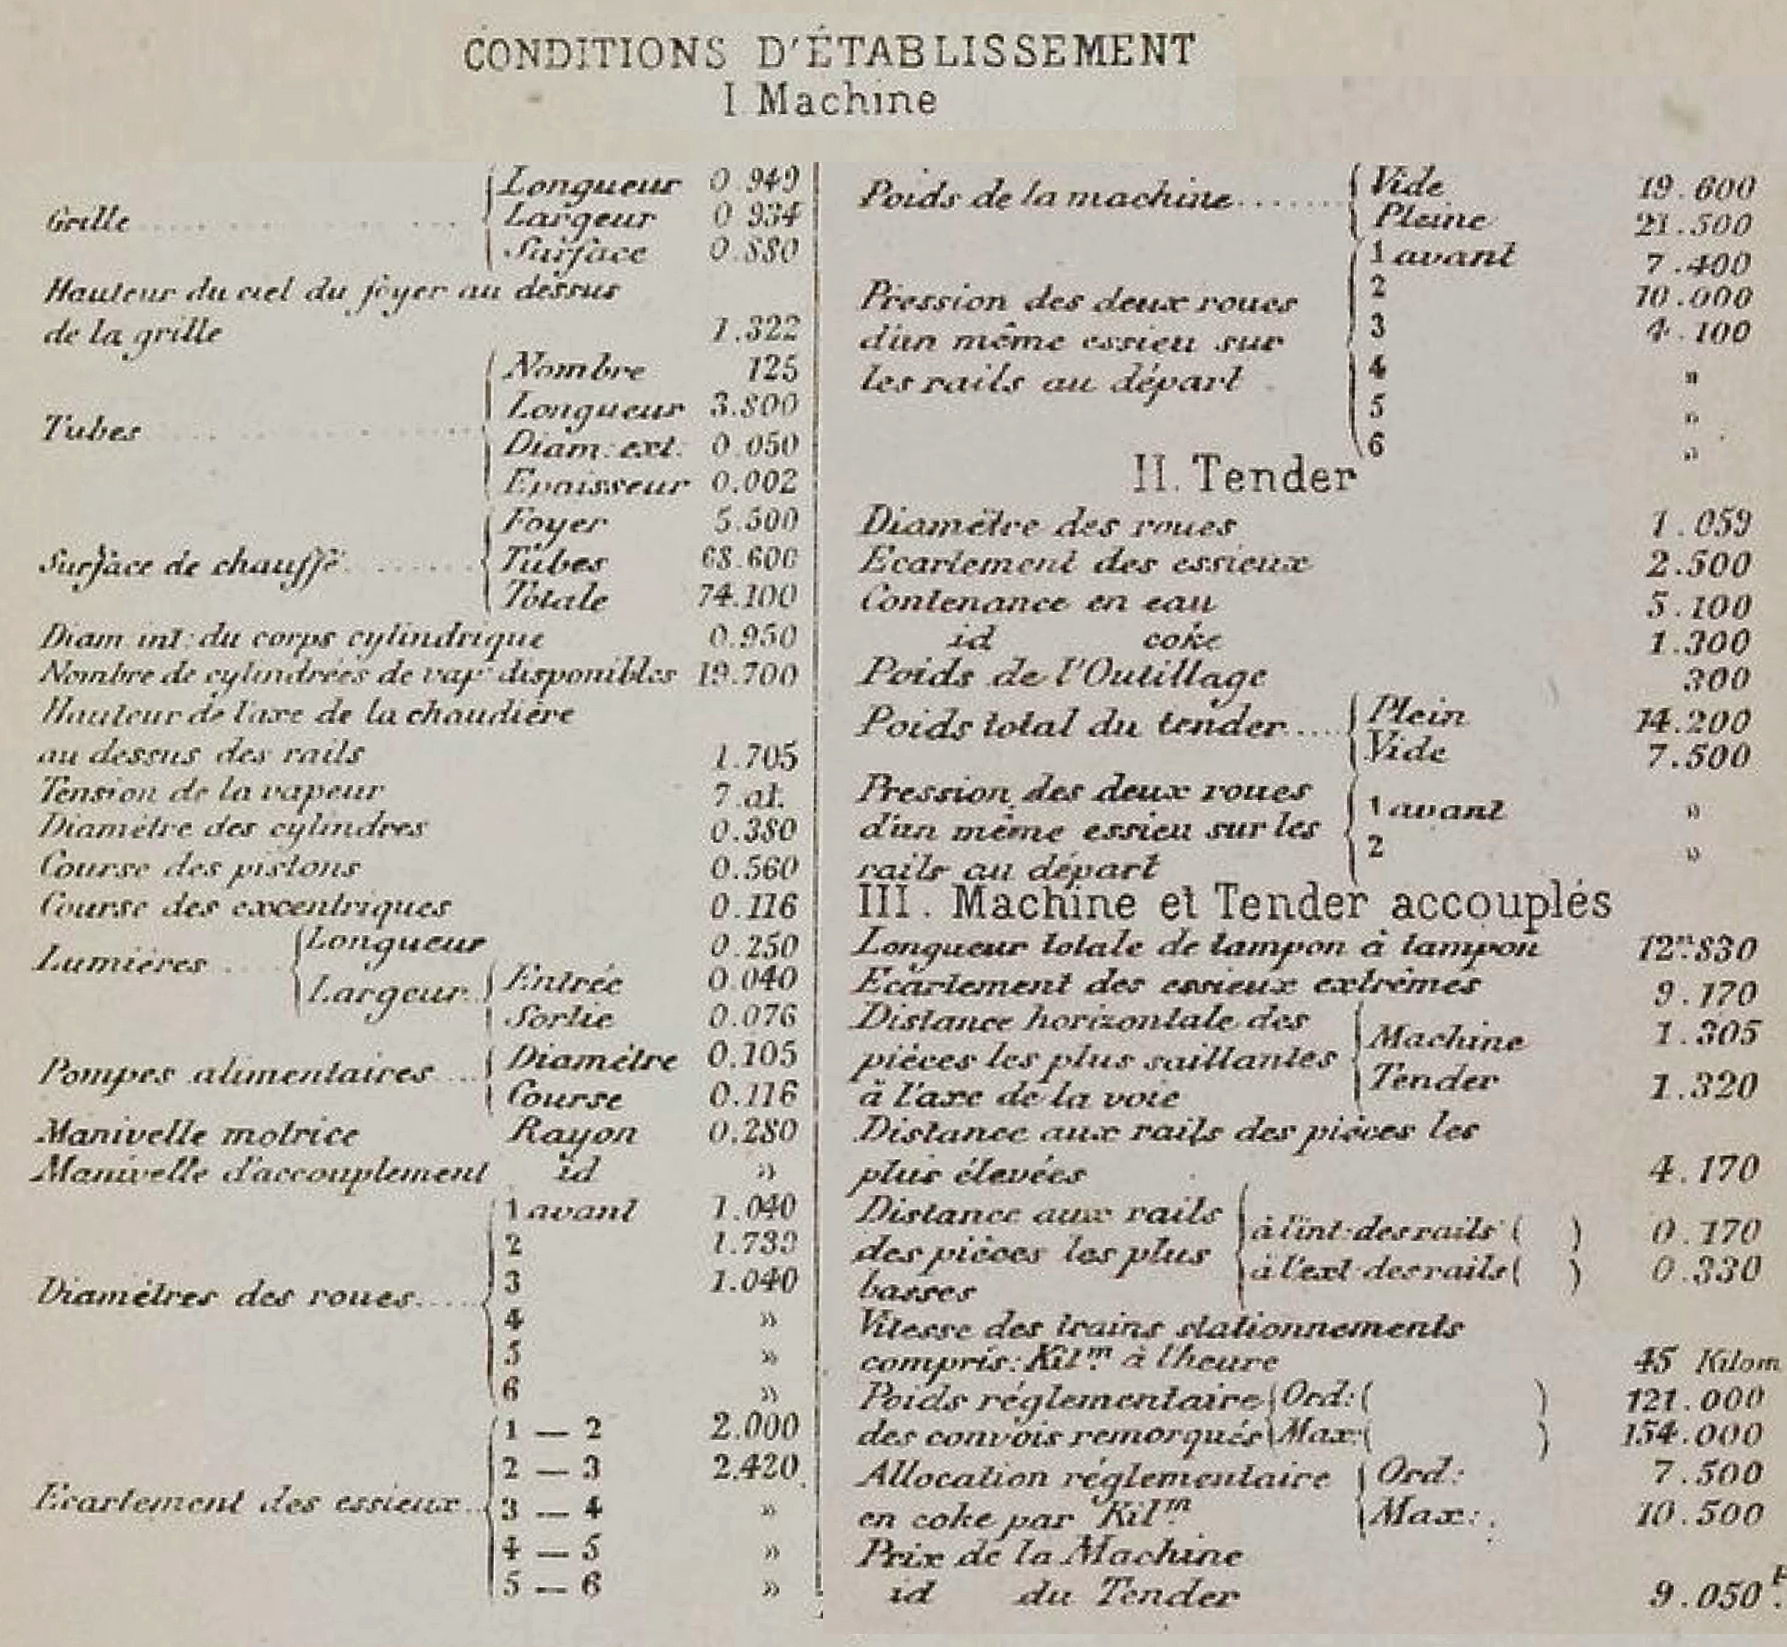 CONDITIONS D'ÉTABLISSEMENT
I Machine
Grille
Longueur 0.949
Largeur 0 934
Surface 0.880
Hauteur du ciel du foyer au dessus
de la grille 1.322
Tubes
Nombre 125
Longueur 3.800
Diam: ext: 0.050
Epaisseur 0.002
Surface de chauffe
Foyer 5.500
Tubes 68.600
Totale 74.100
Diam int: du corps cylindrique 0.950
Nombre de cylindrées de vap: disponibles 19.700
Hauteur de l'axe de la chaudière
au dessus des rails 1.705
Tension de la vapeur 7.at.
Diamètre des cylindres 0.380
Course des pistons 0.560
Course des excentriques 0.116
Lumières
Longueur 0.250
Largeur
Entrée 0.040
Sortie 0.076
Pompes alimentaires
Diamètre 0.105
Course 0.116
Manivelle motrice Rayon 0.280
Manivelle d'accouplement id »
Diamètres des roues
1 avant 1.040
2 1.739
3 1.040
4 »
5 »
6 »
Ecartement des essieux
1 — 2 2.000
2 — 3 2.420
3 — 4 »
4 — 5 »
5 — 6 »
Poids de la machine
Vide 19.600
Pleine 21.500
Pression des deux roues
d'un même essieu sur
les rails au départ
1 avant 7.400
2 10.000
3 4.100
4 »
5 »
6 »
II. Tender
Diamètre des roues 1.059
Ecartement des essieux 2.500
Contenance en eau 5.100
id coke 1.300
Poids de l'Outillage 300
Poids total du tender
Plein 14.200
Vide 7.500
Pression des deux roues
d'un même essieu sur les
rails au départ
1 avant »
2 »
III. Machine et Tender accouplés
Longueur totale de tampon à tampon 12m.830
Ecartement des essieux extrêmes 9.170
Distance horizontale des
pièces les plus saillantes
à l'axe de la voie
Machine 1.305
Tender 1.320
Distance aux rails des pièces les
plus élevées 4.170
Distance aux rails
des pièces les plus
basses
à l'int: des rails ( ) 0.170
à l'ext: des rails ( ) 0.330
Vitesse des trains stationnements
compris: Kilm. à l'heure 45 Kilom
Poids réglementaire
des convois remorqués
Ord: ( ) 121.000
Max: ( ) 154.000
Allocation réglementaire
en coke par Kilm.
Ord: 7.500
Max: 10.500
Prix de la Machine
id du Tender 9.050